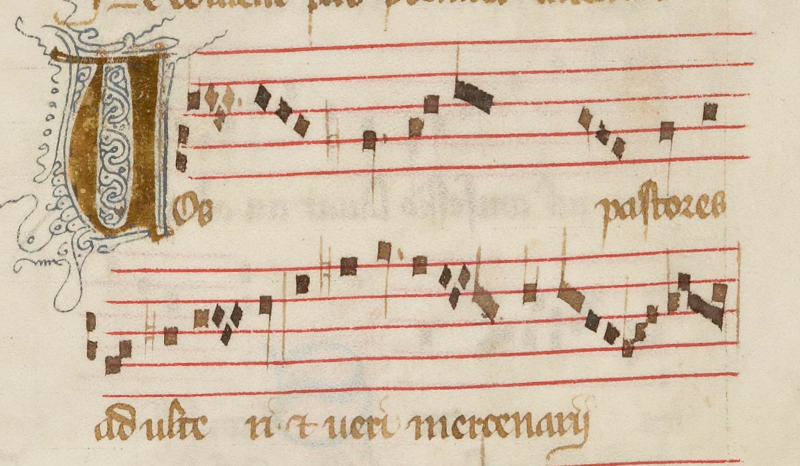 Vos pastores
adulte ri et veri mercenarij